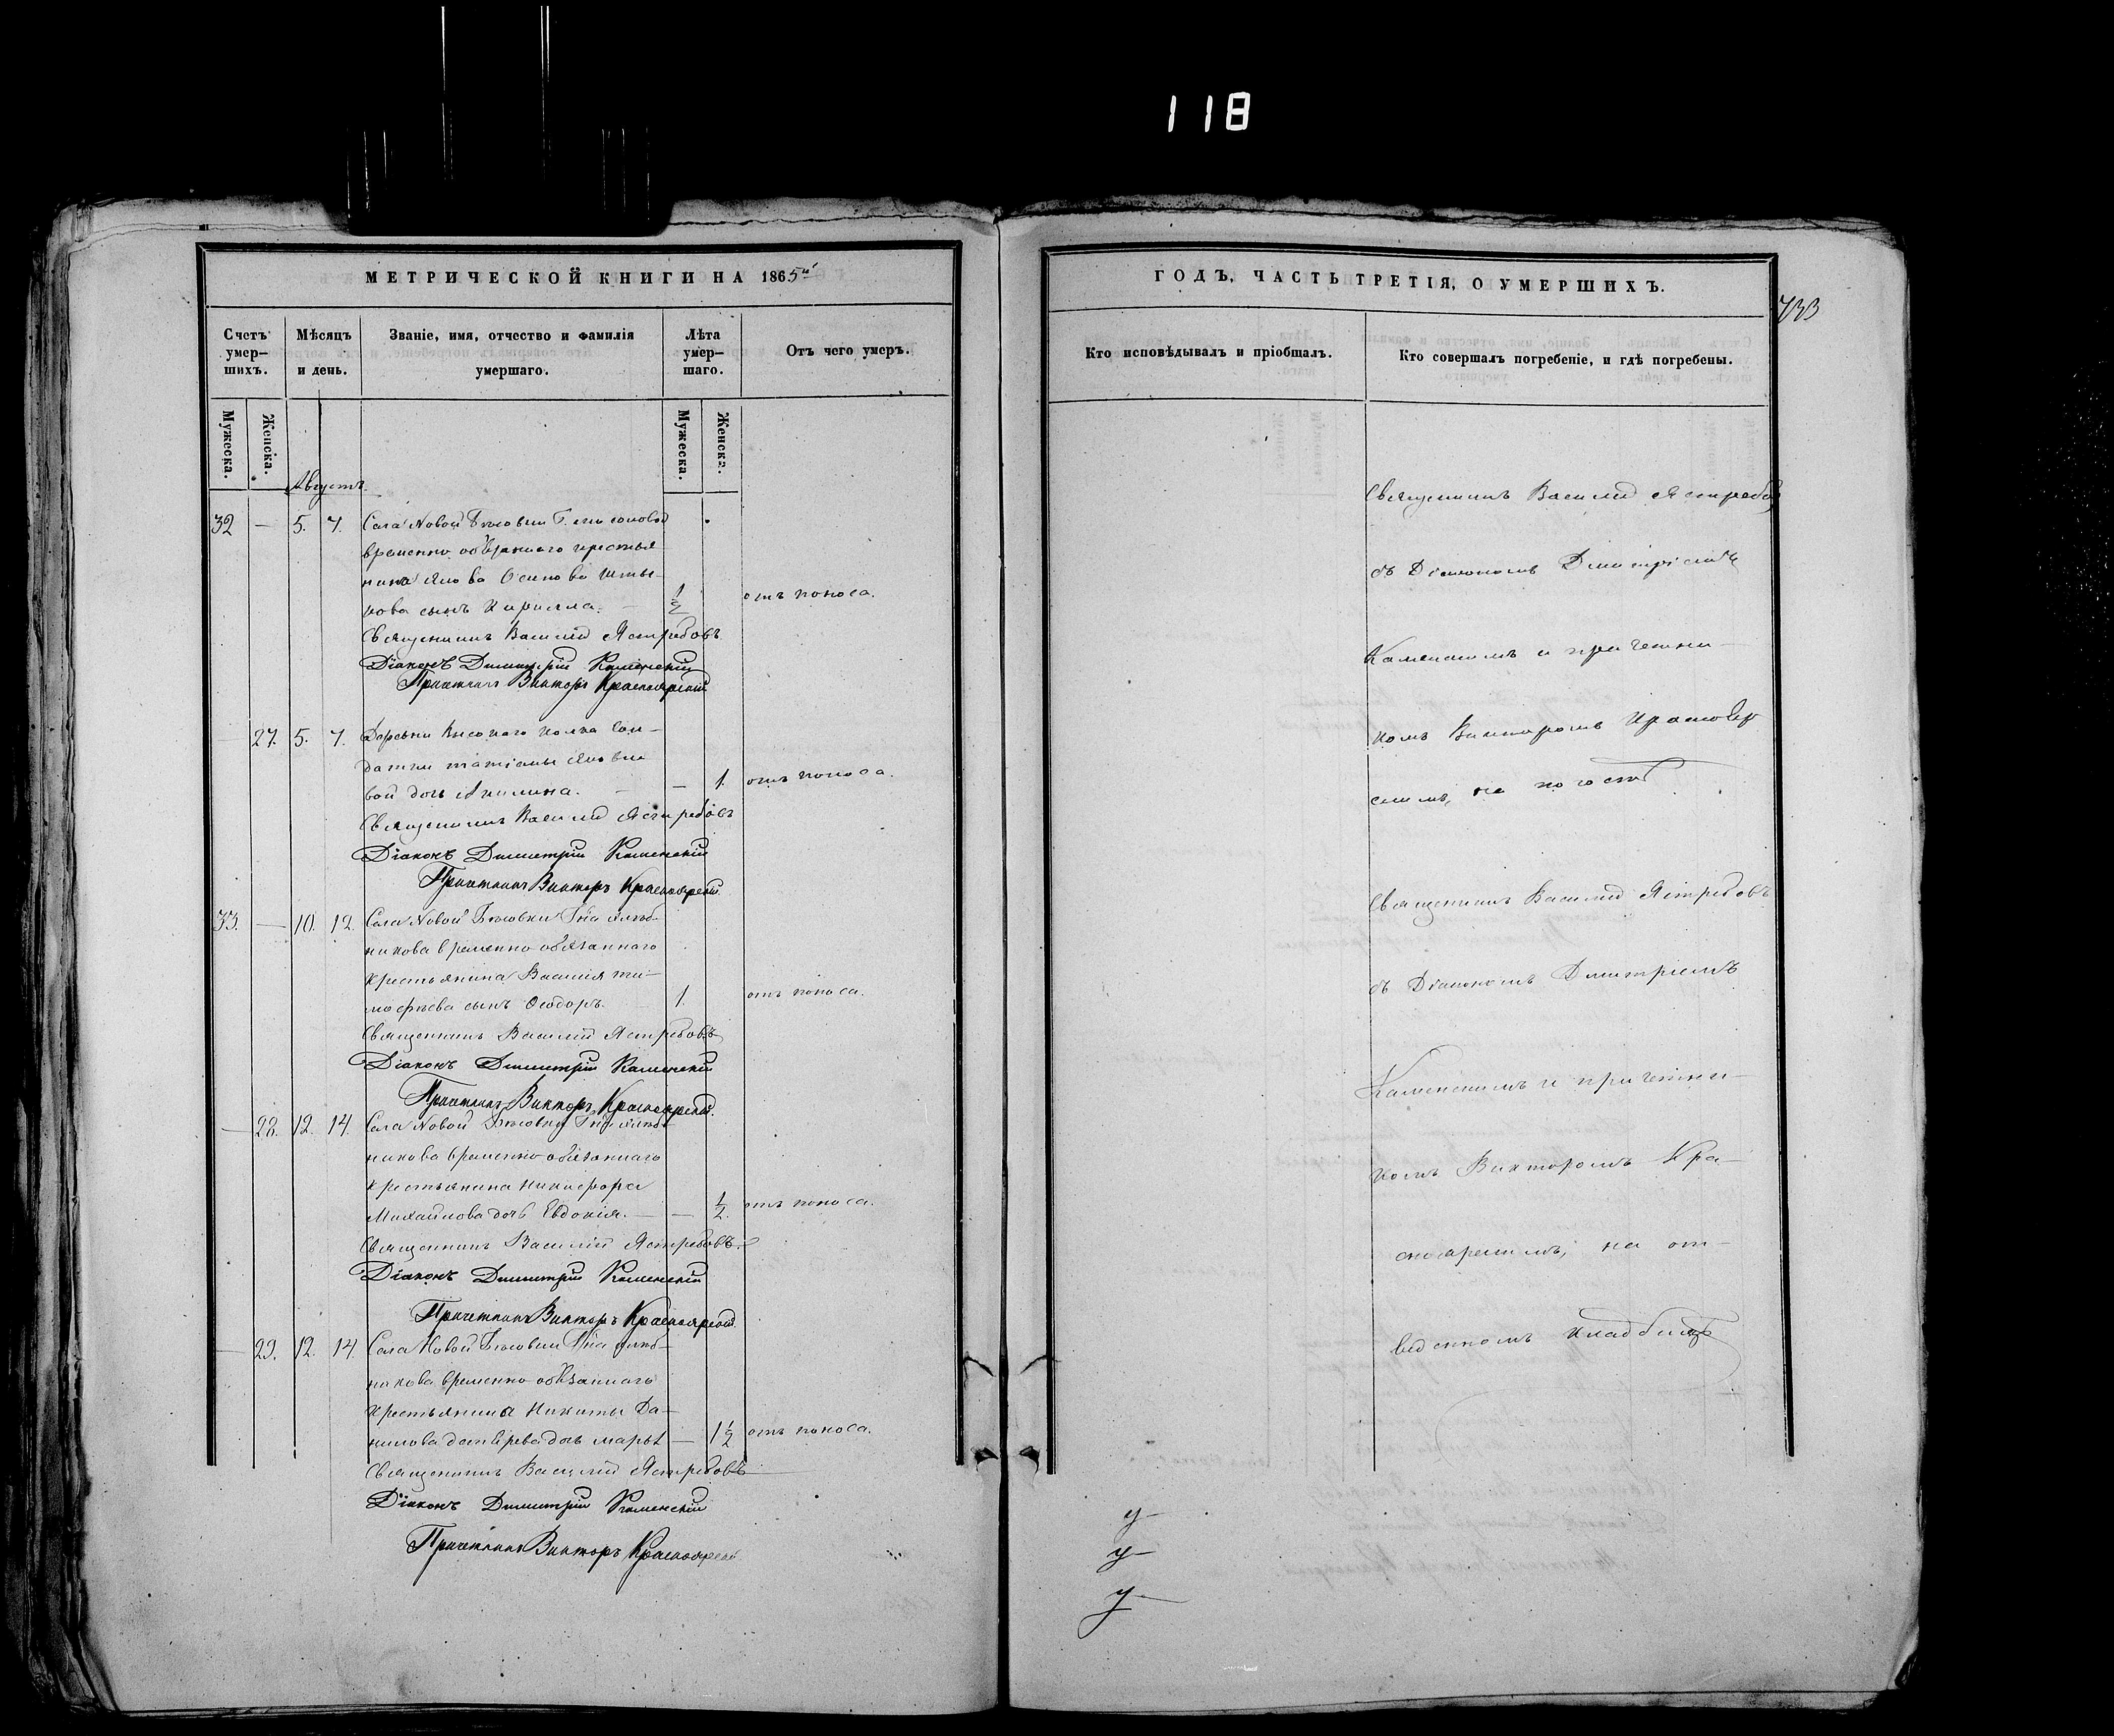 118
МЕТРИЧЕСКОЙ КНИГИ НА 1865й
Счетъ умер-шихъ.
Мѣсяцъ и день.
Званіе, имя, отчество и фамилія умершаго.
Лѣта умер-шаго.
Отъ чего умеръ.
Мужеска.
Женска.
Мужеска.
Женска.
Августъ.
32 — 5. 7. Села Новой
временно обязаннаго крестья
нина Якова Осипова
кова сынъ Кирилла. — 1/2 отъ поноса.
Священникъ Василій Ястребовъ
Діаконъ Димитрій Каменскій
Причетникъ Викторъ Красноярскій
27. 5. 7. Деревни Высокаго Сол-
датки Татіаны
вой дочь Акилина. — 1. отъ поноса.
Священникъ Василій Ястребовъ
Діаконъ Димитрій Каменскій
Причетникъ Викторъ Красноярскій
33. — 10. 12. Села Новой
никова временно обязаннаго
крестьянина Василія Ти-
мофѣева сынъ Ѳеодоръ. 1. отъ поноса.
Священникъ Василій Ястребовъ
Діаконъ Димитрій Каменскій
Причетникъ Викторъ Красноярскій.
— 28. 12. 14. Села Новой
никова временно обязаннаго
крестьянина Никифора
Михайлова дочь Евдокія. — 1/2 отъ поноса.
Священникъ Василій Ястребовъ.
Діаконъ Димитрій Каменскій
Причетникъ Викторъ Красноярскій.
— 29. 12. 14. Села Новой
никова временно обязаннаго
крестьянина Никиты Да-
нилова дочь Марья — 1 1/2 отъ поноса.
Священникъ Василій Ястребовъ
Діаконъ Димитрій Каменскій
Причетникъ Викторъ Красноярскій
ГОДЪ, ЧАСТЬ ТРЕТІЯ, О УМЕРШИХЪ.
733
Кто исповѣдывалъ и пріобщалъ.
Кто совершалъ погребеніе, и гдѣ погребены.
Священникъ Василій Ястребовъ
съ Діакономъ Димитріемъ
Каменскимъ и причетни-
комъ Викторомъ Краснояр
скимъ, на погостѣ
Священникъ Василій Ястребовъ
съ Діакономъ Димитріемъ
Каменскимъ и причетни-
комъ Викторомъ Кра-
сноярскимъ, на от-
веденномъ кладбищѣ